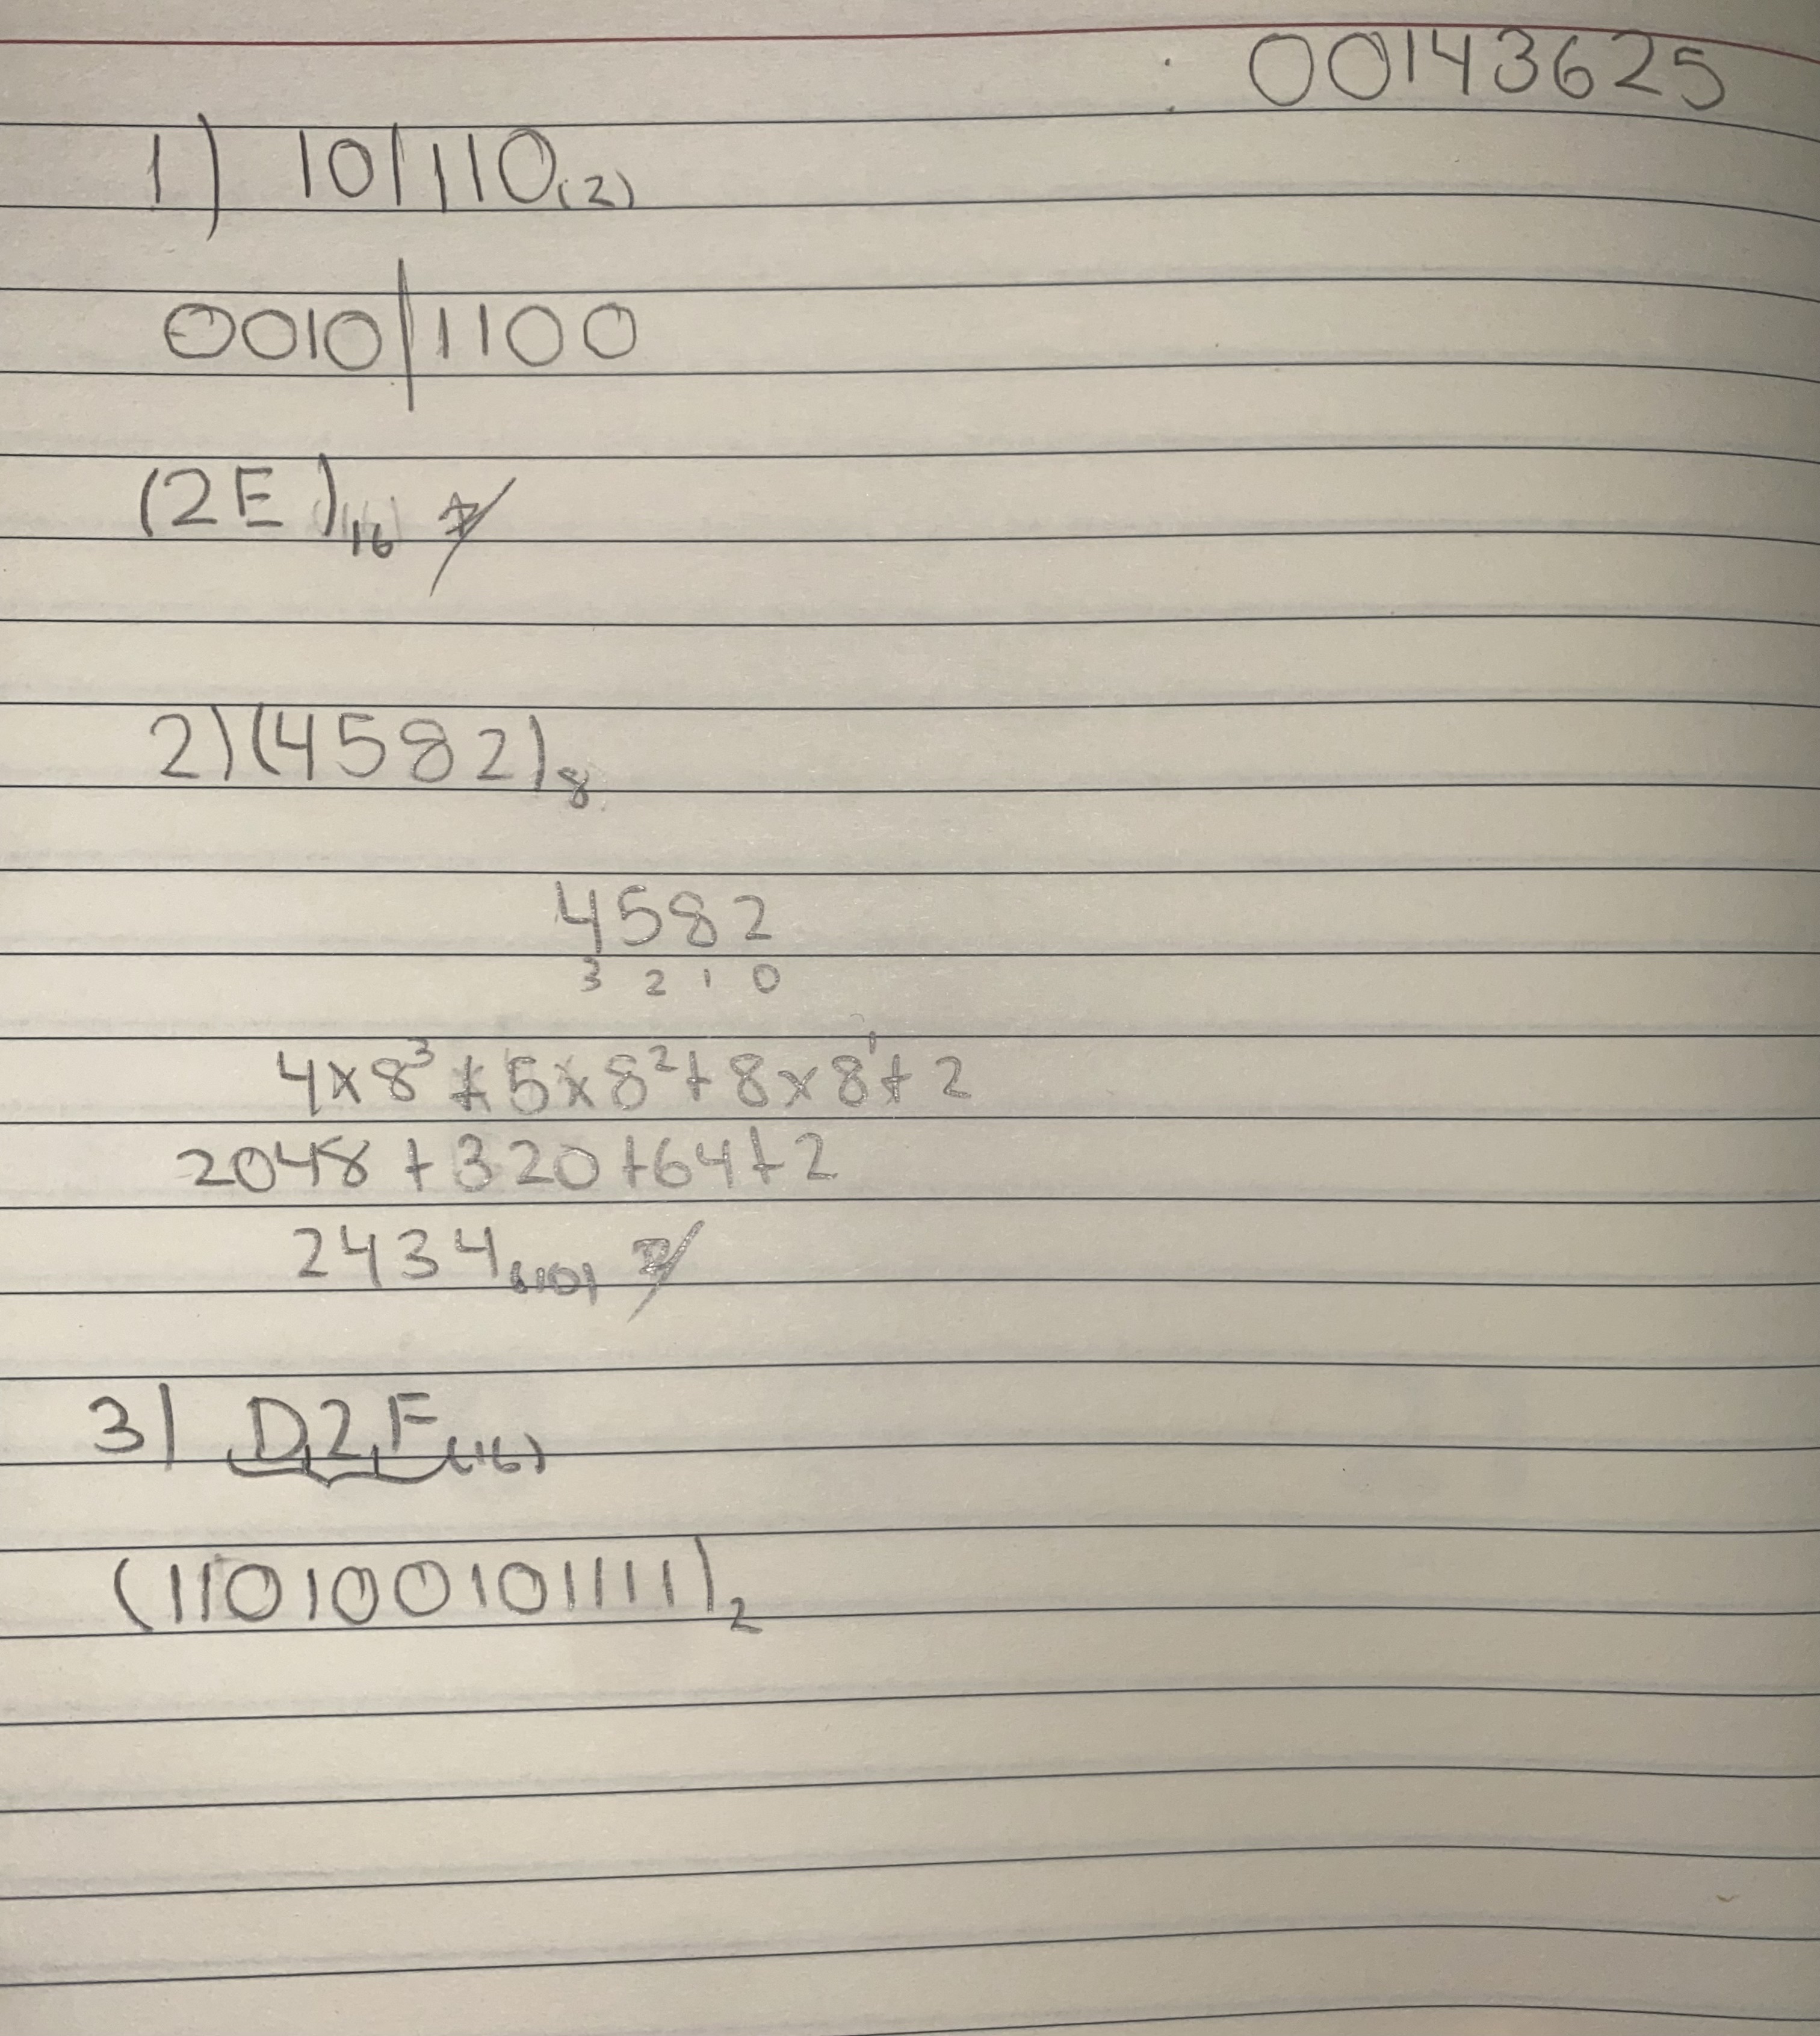 00143625
1) 10/110(2)
0010/1100
(2E)16
2)(4582)8
4582
3 2 1 0
4x8³+5x8²+8x8¹+2
2048+320+64+2
2434(10)
3) D2F(16)
(110100101111)2